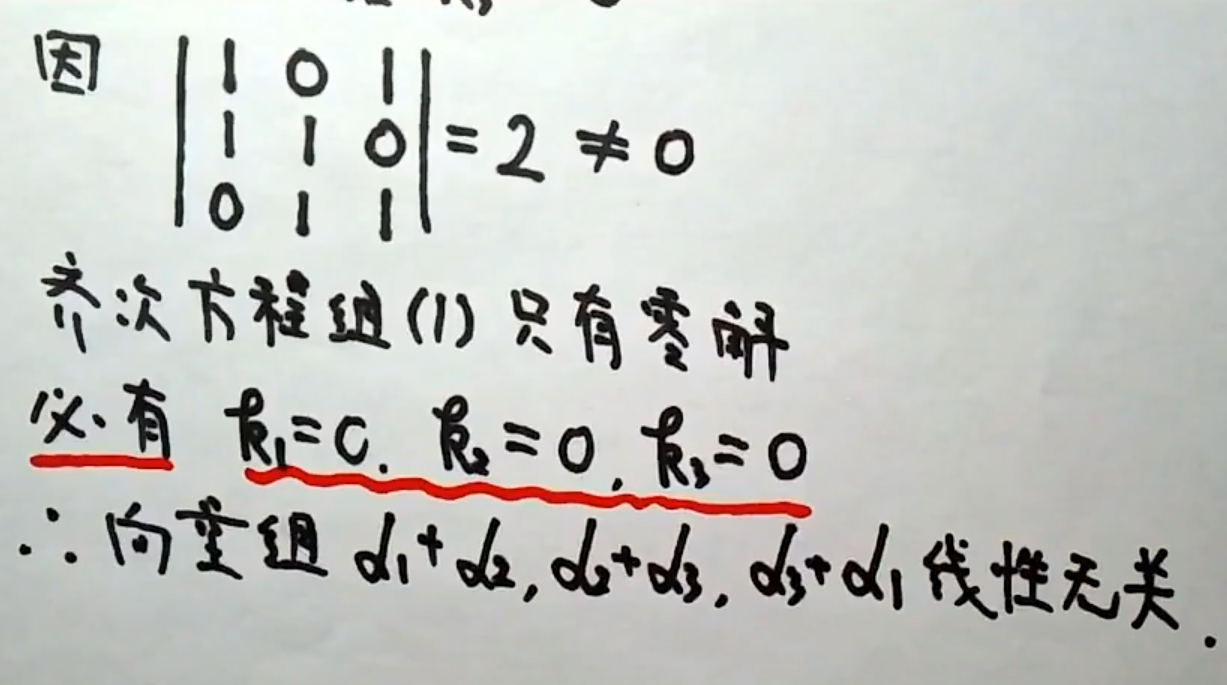 因 | 1 0 1 |
| 1 1 0 | = 2 ≠ 0
| 0 1 1 |
齐次方程组(1)只有零解
必有 k₁=0. k₂=0, k₃=0
∴ 向量组 α₁+α₂, α₂+α₃, α₃+α₁ 线性无关.